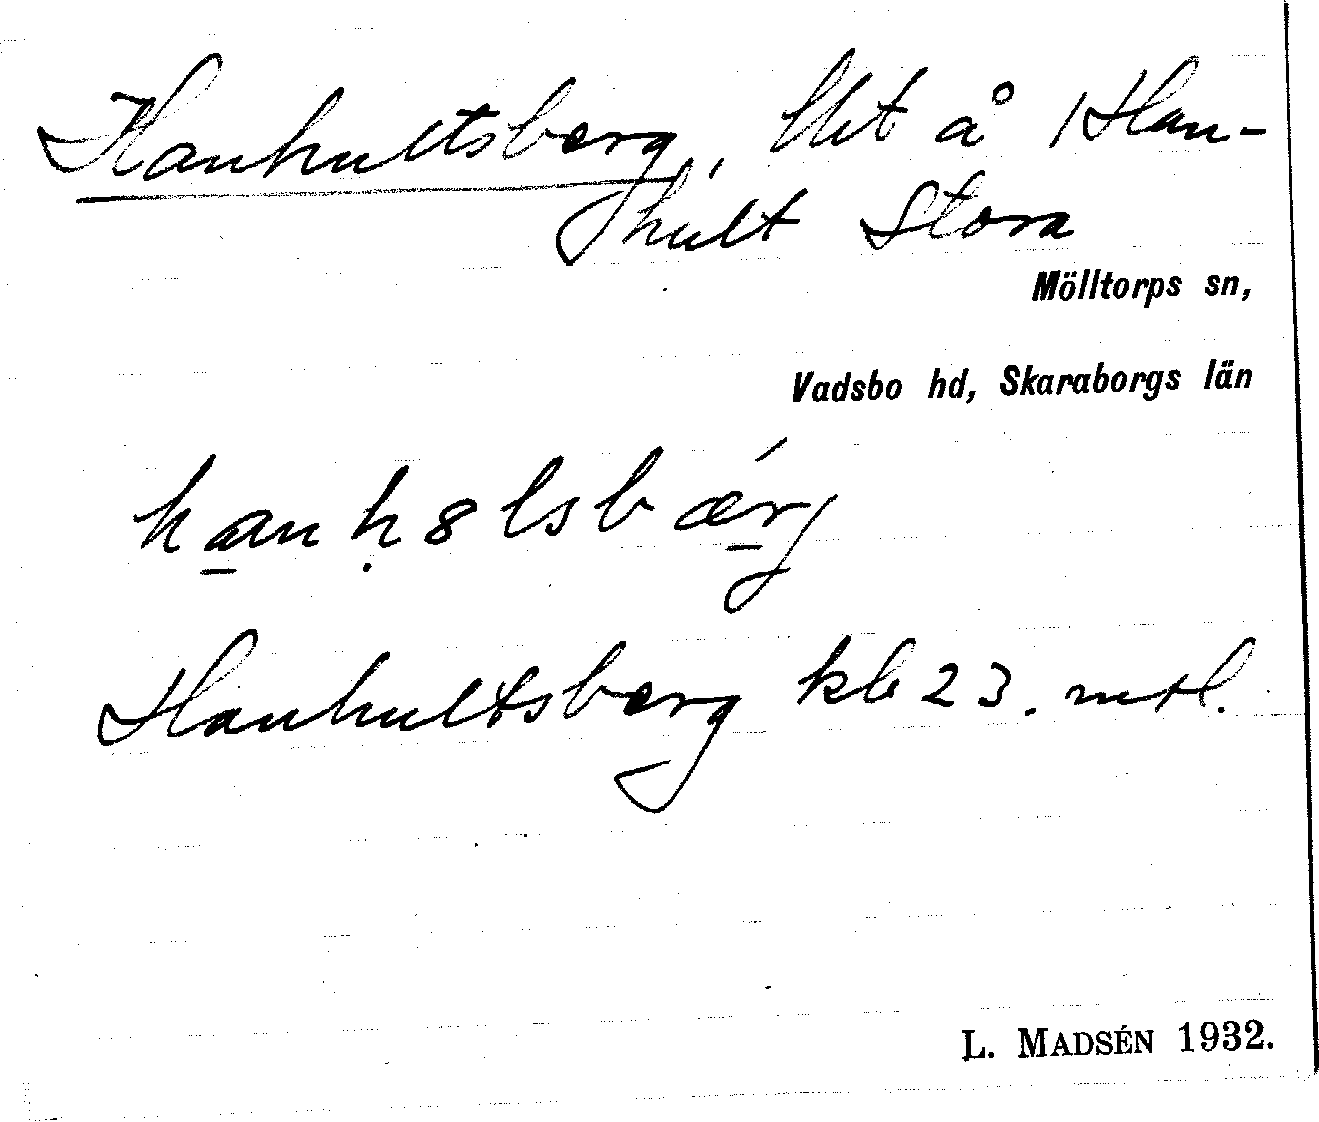 Hanhultsberg, lht å Han-
hult Stora
Mölltorps sn,
Vadsbo hd, Skaraborgs län
Hanhultsberg kbl 23. mtl.
L. MADSÉN 1932.